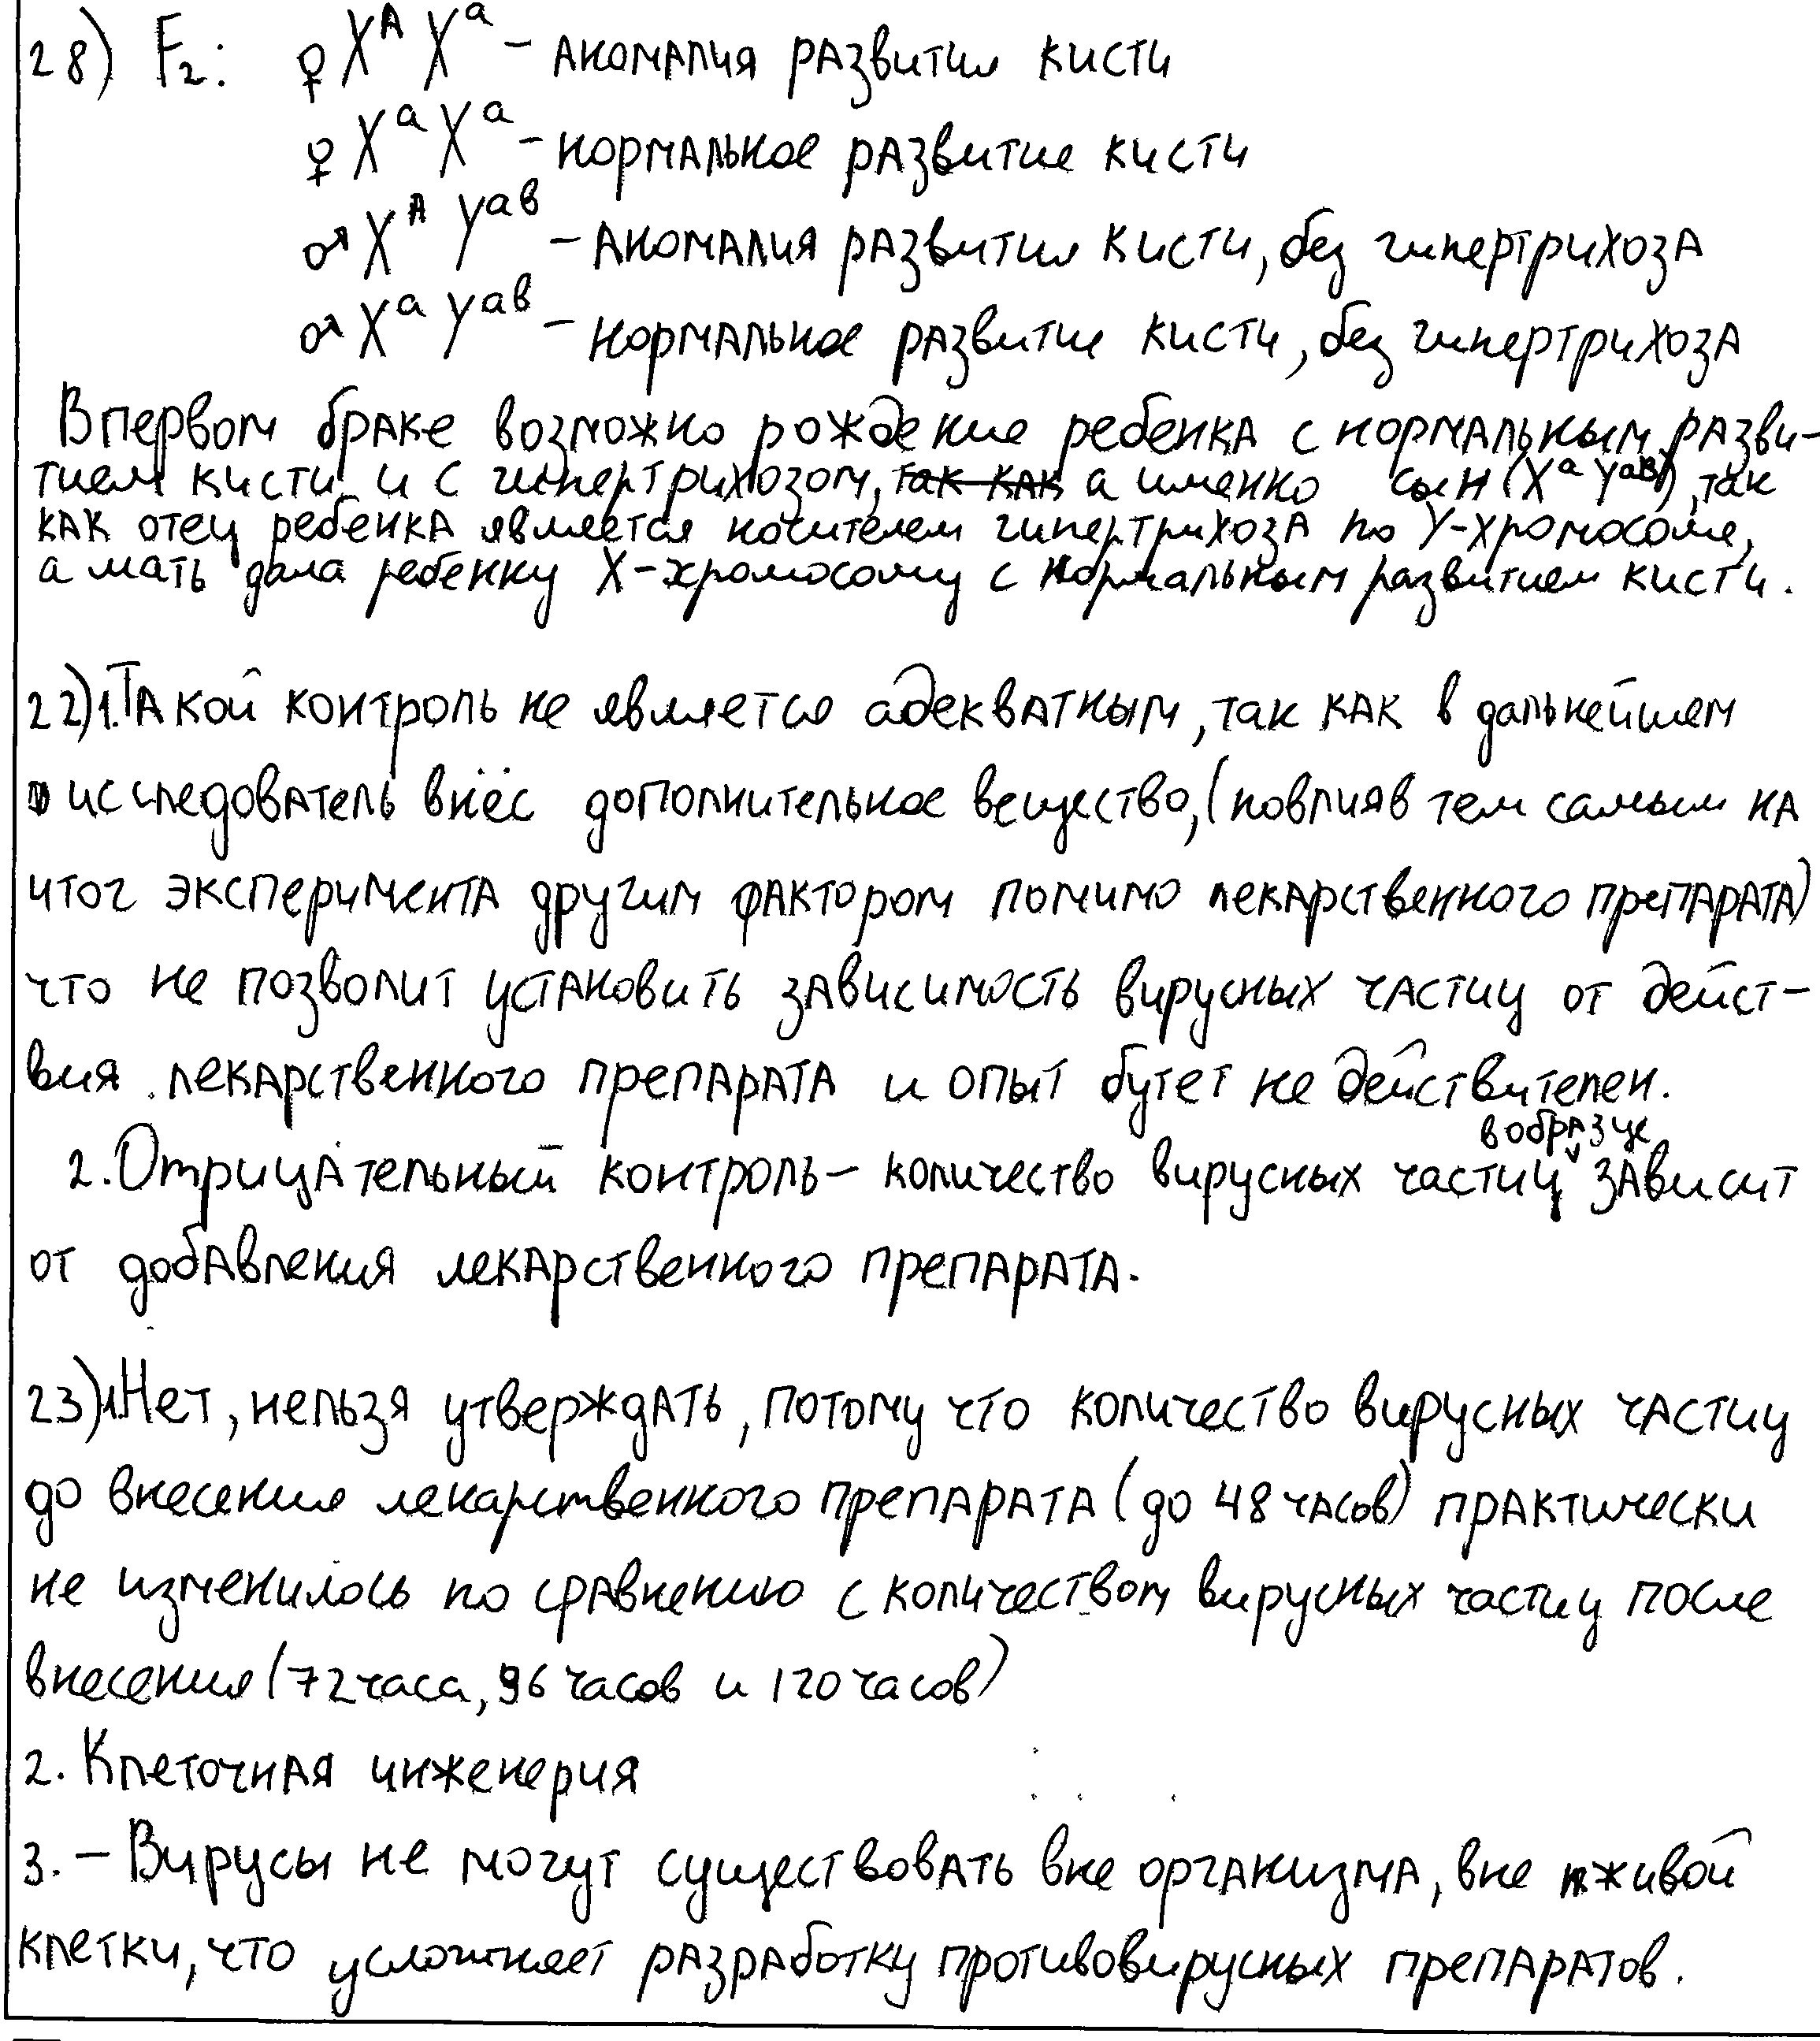 28) F₂: ♀ Xᴬ Xᵃ – аномалия развития кисти
♀ Xᵃ Xᵃ – нормальное развитие кисти
♂ Xᴬ Yᵃᵇ – аномалия развития кисти, без гипертрихоза
♂ Xᵃ Yᵃᵇ – нормальное развитие кисти, без гипертрихоза
В первом браке возможно рождение ребенка с нормальным разви-
тием кисти и с гипертрихозом, так как а именно сын (Xᵃ Yᵃᴮ), так
как отец ребенка является носителем гипертрихоза по Y-хромосоме,
а мать дала ребенку X-хромосому с нормальным развитием кисти.
22) 1. Такой контроль не является адекватным, так как в дальнейшем
исследователь внёс дополнительное вещество, (повлияв тем самым на
итог эксперимента другим фактором помимо лекарственного препарата)
что не позволит установить зависимость вирусных частиц от дейст-
вия лекарственного препарата и опыт бутет не действителен.
2. Отрицательный контроль – количество вирусных частиц в образце зависит
от добавления лекарственного препарата.
23) 1. Нет, нельзя утверждать, потому что количество вирусных частиц
до внесения лекарственного препарата (до 48 часов) практически
не изменилось по сравнению с количеством вирусных частиц после
внесения (72 часа, 96 часов и 120 часов)
2. Клеточная инженерия
3. – Вирусы не могут существовать вне организма, вне живой
клетки, что усложняет разработку противовирусных препаратов.